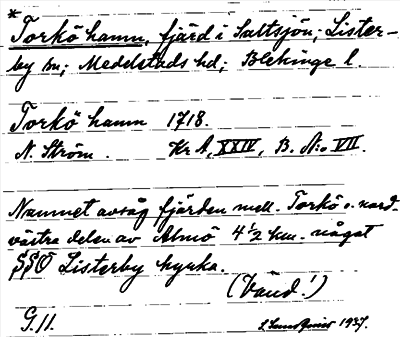 *
Torkö hamn, fjärd i Saltsjön; Lister-
by sn; Medelstads hd; Blekinge l.
Torkö hamn 1718.
N. Ström. Kr A, XXIV, B. N:o VII.
Namnet avsåg fjärden mell. Torkö o. nord-
västra delen av Almö 4 1/2 km. något
SSO Listerby kyrka.
(Vänd!)
G. 11. 1937.